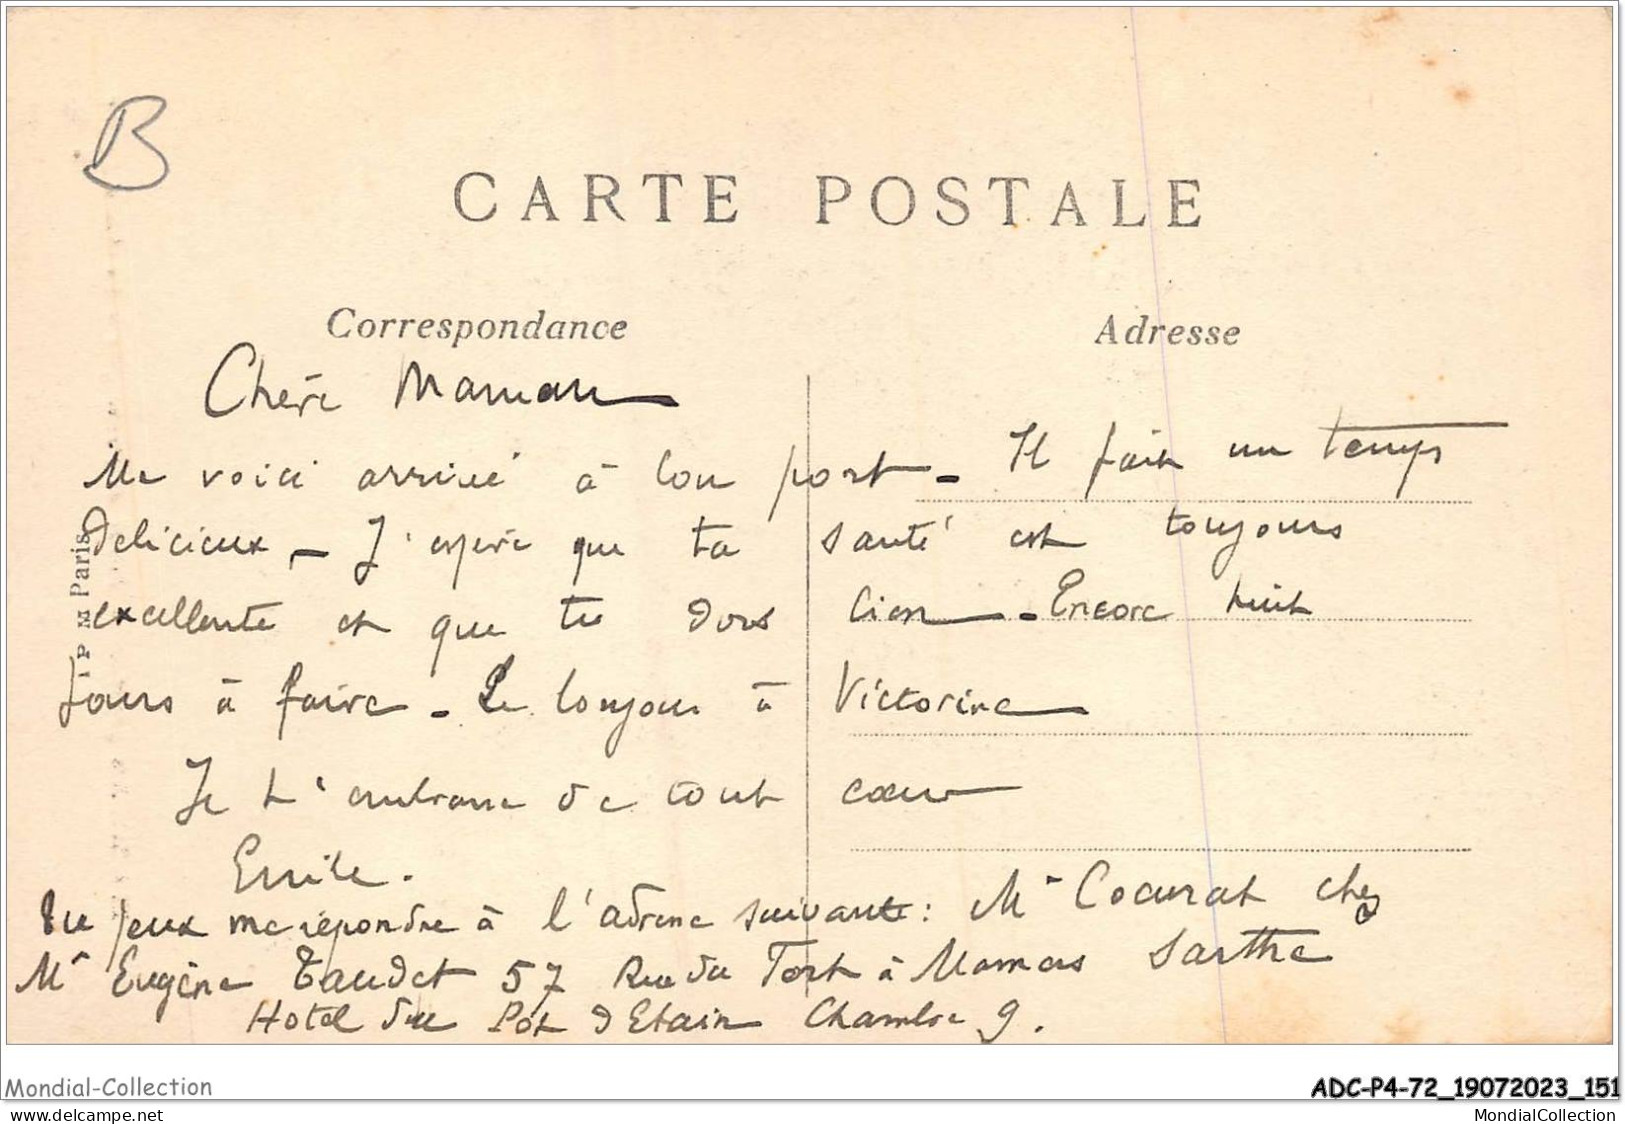 B
CARTE POSTALE
Correspondance
Adresse
Chère Maman
Me voici arrivé à bon port - Il fait un temps
délicieux - J'espère que ta santé est toujours
excellente et que tu dors bien - Encore huit
jours à faire - Le bonjour à Victorine
Je t'embrasse de tout cœur
Emile.
Tu peux me répondre à l'adresse suivante: Mr Cocurat chez
Mr Eugène Taudet 57 Rue du Fort à Mamers Sarthe
Hotel du Pot d Etain Chambre 9.
I P M Paris
Mondial-Collection
ADC-P4-72_19072023_151
www.delcampe.net
MondialCollection